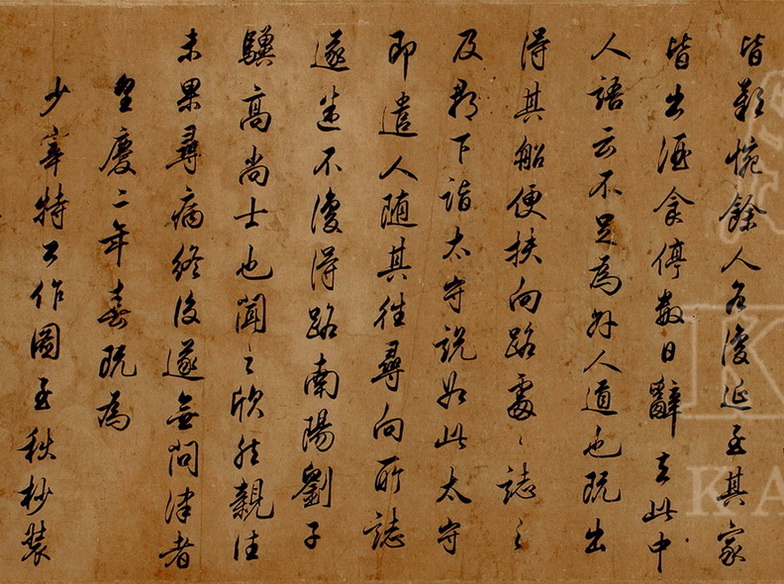 皆歎惋餘人各復延至其家
皆出酒食停數日辭去此中
人語云不足為外人道也既出
得其船便扶向路處〻誌之
及郡下詣太守說如此太守
即遣人隨其往尋向所誌
遂迷不復得路南陽劉子
驥高尚士也聞之欣然親往
未果尋病終後遂無問津者
皇慶二年春既為
少宰特公作圖至秋杪裝
K
KA